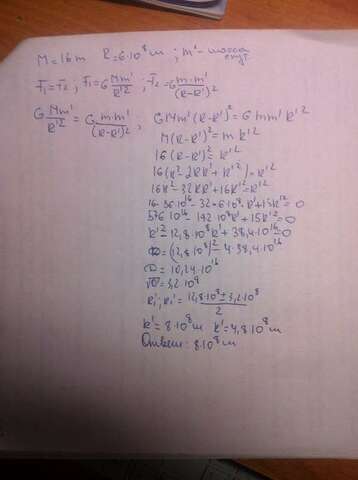 M=16m R=6·10⁸м ; m'- масса
F₁=F₂ ; F₁=G Mm'/R'² ; F₂=G m·m'/(R-R')²
G Mm'/R'² = G mm'/(R-R')² ; GMm'(R-R')²=Gmm'R'²
M(R-R')²=mR'²
16(R-R')²=R'²
16(R²-2RR'+R'²)=R'²
16R²-32RR'+16R'²=R'²
16·36·10¹⁶-32·6·10⁸·R'+15R'²=0
576·10¹⁶-192·10⁸R'+15R'²=0
R'²-12,8·10⁸R'+38,4·10¹⁶=0
D=(12,8·10⁸)²-4·38,4·10¹⁶
D=10,24·10¹⁶
√D=3,2·10⁸
R₁';R₂'=12,8·10⁸±3,2·10⁸/2
R'=8·10⁸м R'=4,8·10⁸м
Ответ: 8·10⁸м